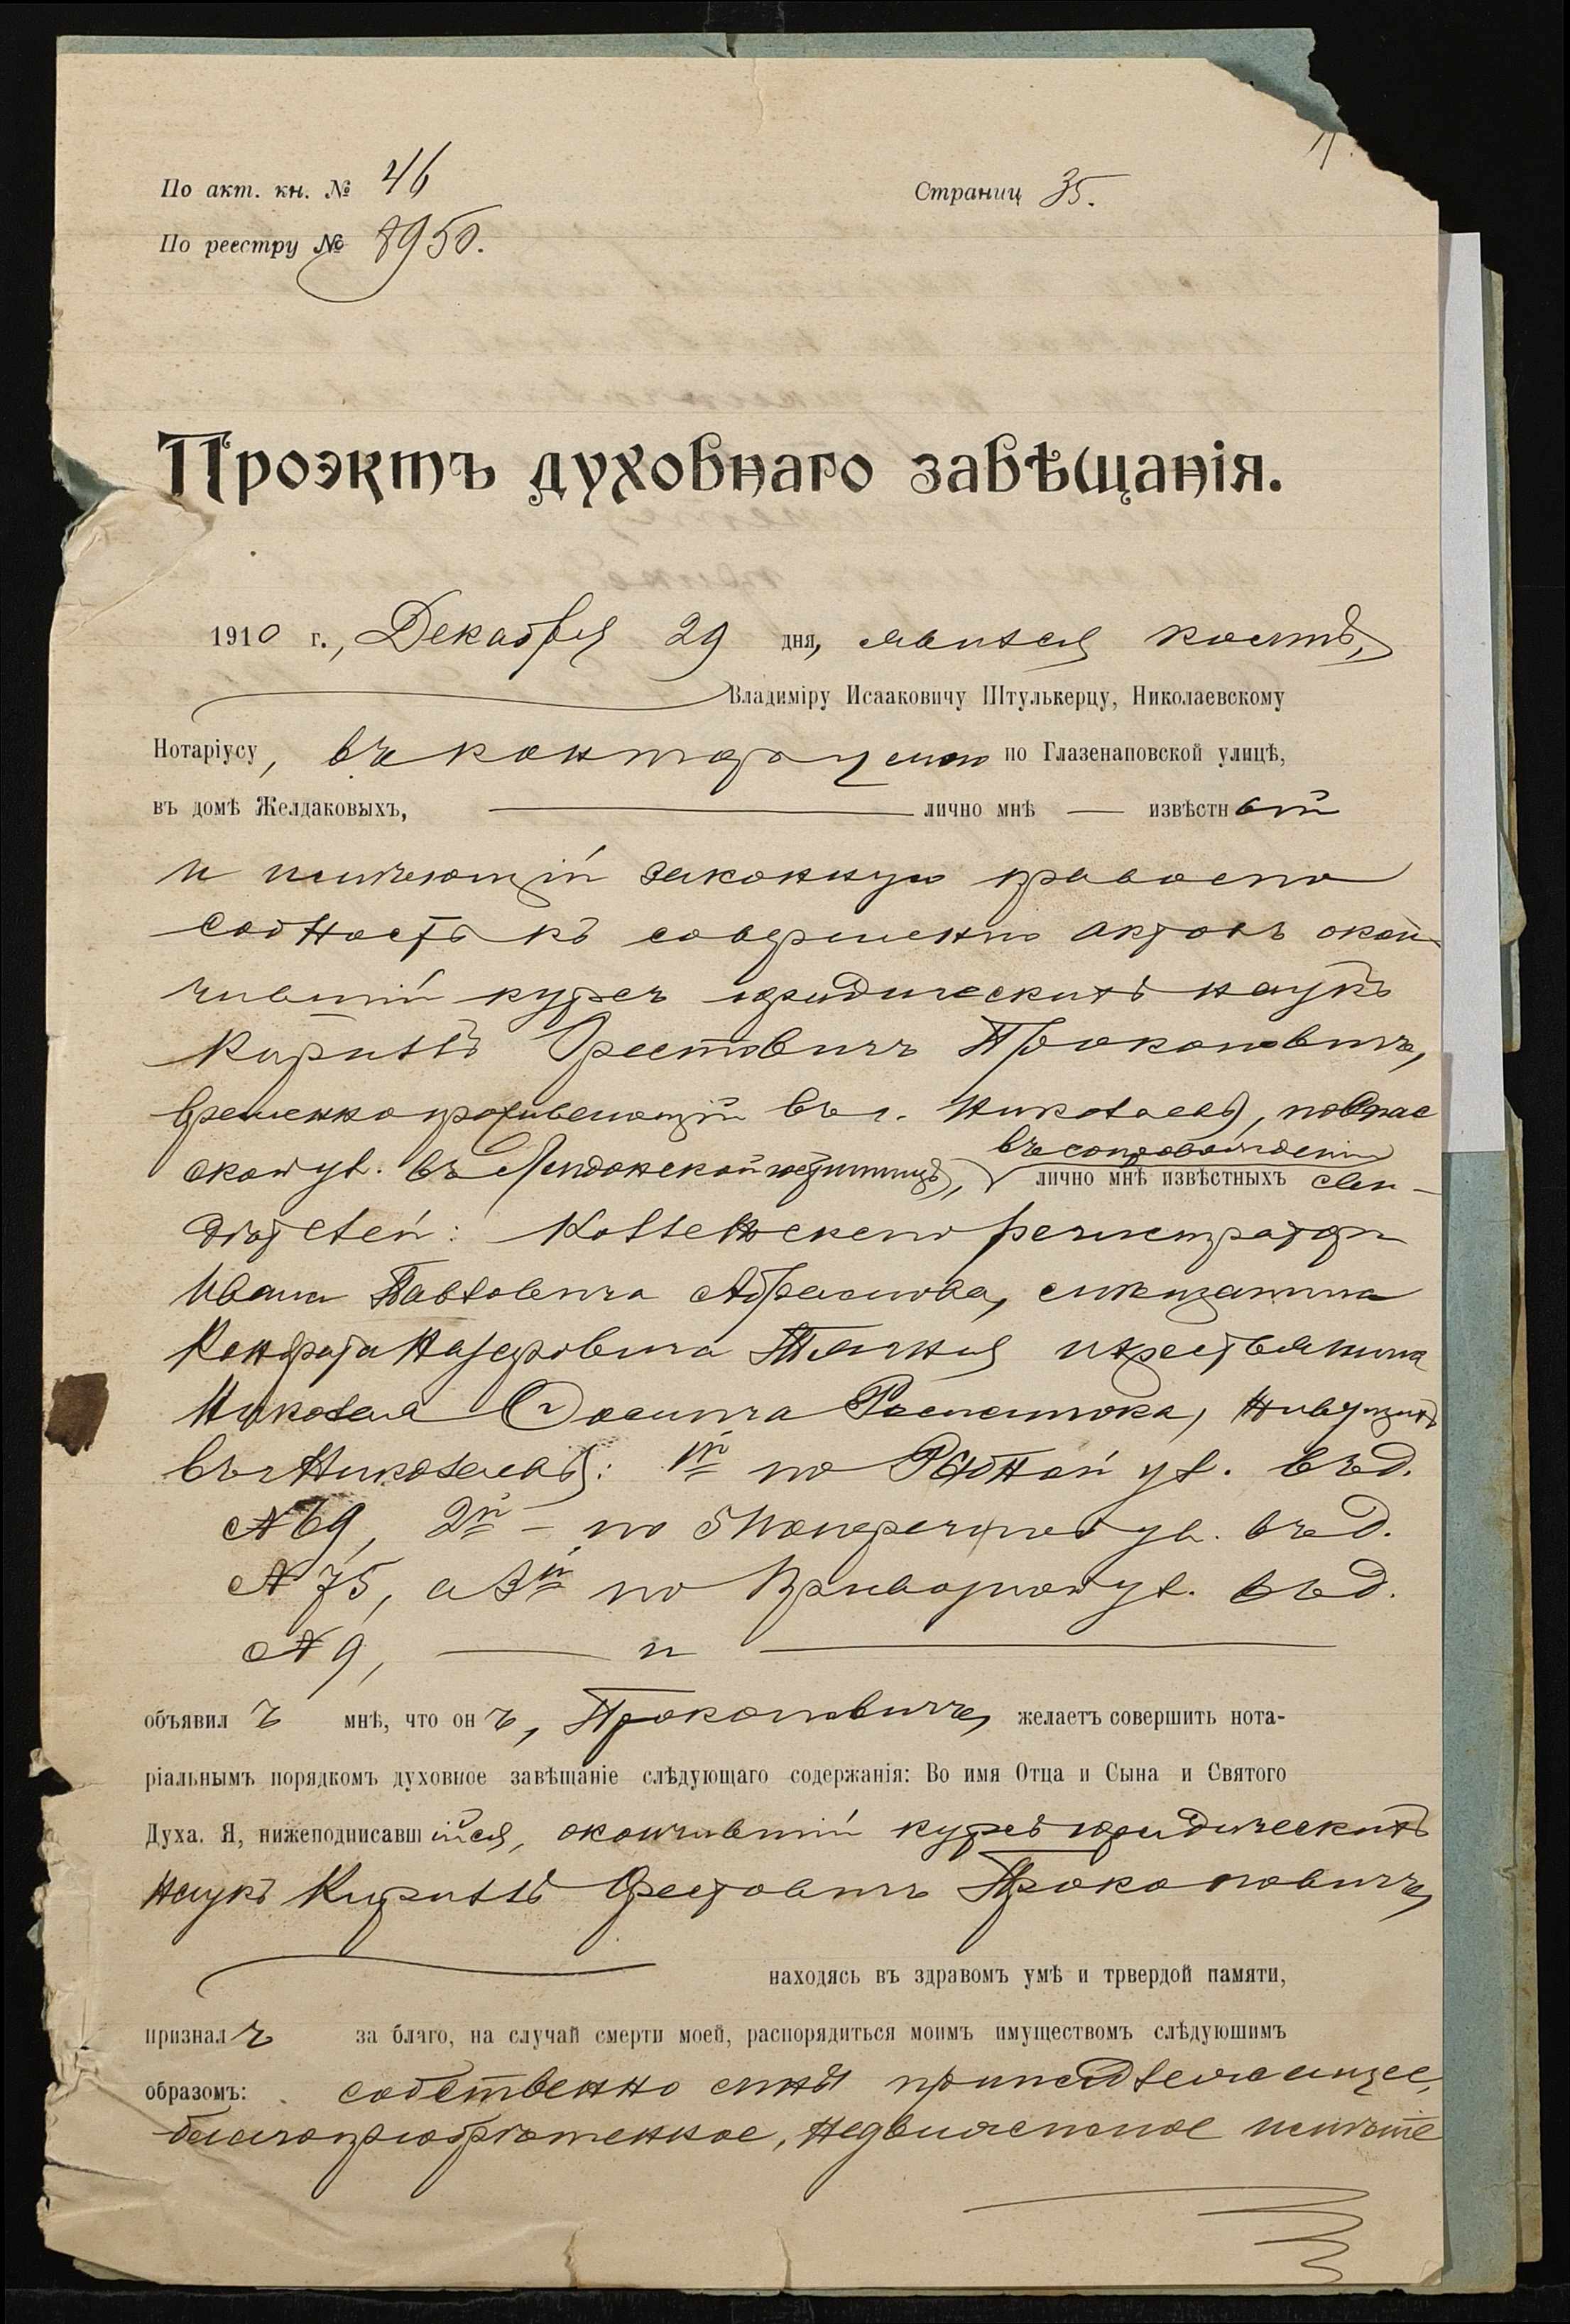 По акт. кн. № 46
Страниц 35.
По реестру № 8950.
Проэктъ духовнаго завѣщанія.
1910 г., Декабря 29 дня, явился ко мнѣ,
Владиміру Исааковичу Штулькерцу, Николаевскому
Нотаріусу, въ контору мою по Глазенаповской улицѣ,
въ домѣ Желдаковыхъ, лично мнѣ извѣстный
и имѣющій законную правоспо
собность къ совершенію актовъ окон-
чившій курсъ юридическихъ наукъ
Кириллъ Орестовичъ Прокоповичъ,
временно проживающій въ г. Николаевѣ, по Спас
ской ул. въ Лондонской гостинницѣ,
въ сопровожденіи
лично мнѣ извѣстныхъ сви-
дѣтелей: Коллежскаго регистратора
Ивана Павловича Абрамова, мѣщанина
Кондрата Назаровича и крестьянина
Николая Осипова живущихъ
въ г. Николаевѣ: 1й по Рыбной ул. въ д.
№ 69, 2й – по 5 Поперечной ул. въ д.
№ 75, а 3й по ул. въ д.
№ 9, и
объявилъ мнѣ, что онъ, Прокоповичъ, желаетъ совершить нота-
ріальнымъ порядкомъ духовное завѣщаніе слѣдующаго содержанія: Во имя Отца и Сына и Святого
Духа. Я, нижеподписавшійся, окончившій курсъ юридическихъ
наукъ Кириллъ Орестовичъ Прокоповичъ,
находясь въ здравомъ умѣ и трвердой памяти,
призналъ за благо, на случай смерти моей, распорядиться моимъ имуществомъ слѣдуюшимъ
образомъ: собственно мнѣ принадлежащее,
благопріобрѣтенное, недвижимое имѣніе